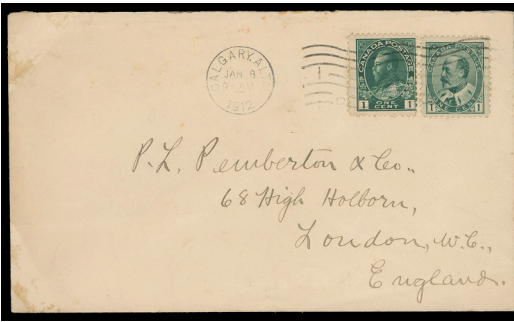 CALGARY, ALTA
JAN 8
9 AM
1912
CANADA POSTAGE
1 ONE CENT 1
CANADA POSTAGE
1 ONE CENT 1
P. L. Pemberton & Co.,
68 High Holborn,
London, W.C.,
England.